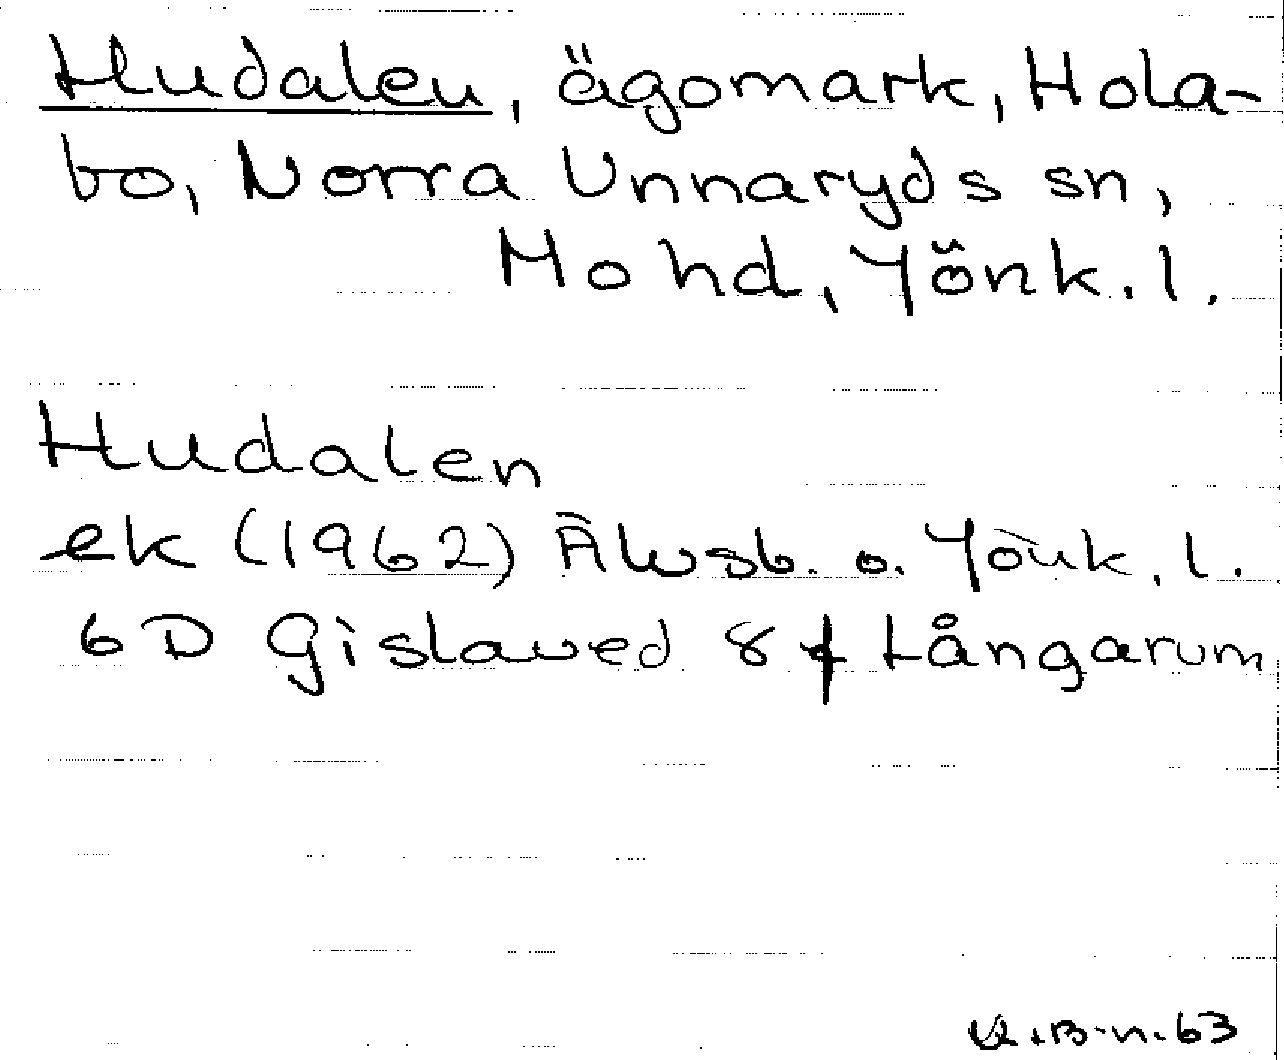 Hudalen, ägomark, Hola-
bo, Norra Unnaryds sn,
Mo hd, Jönk. l.
Hudalen
ek (1962) Älvsb. o. Jönk. l.
6 D Gislaved 8 f Långarum